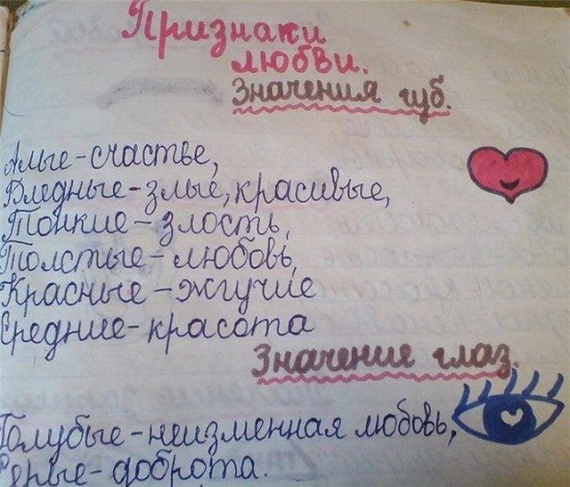 Признаки
любви.
Значения губ.
Алые-счастье,
Бледные-злые, красивые,
Тонкие-злость,
Толстые-любовь,
Красные-жгучие
Средние-красота
Значение глаз.
Голубые-неизменная любовь,
Серые-доброта.